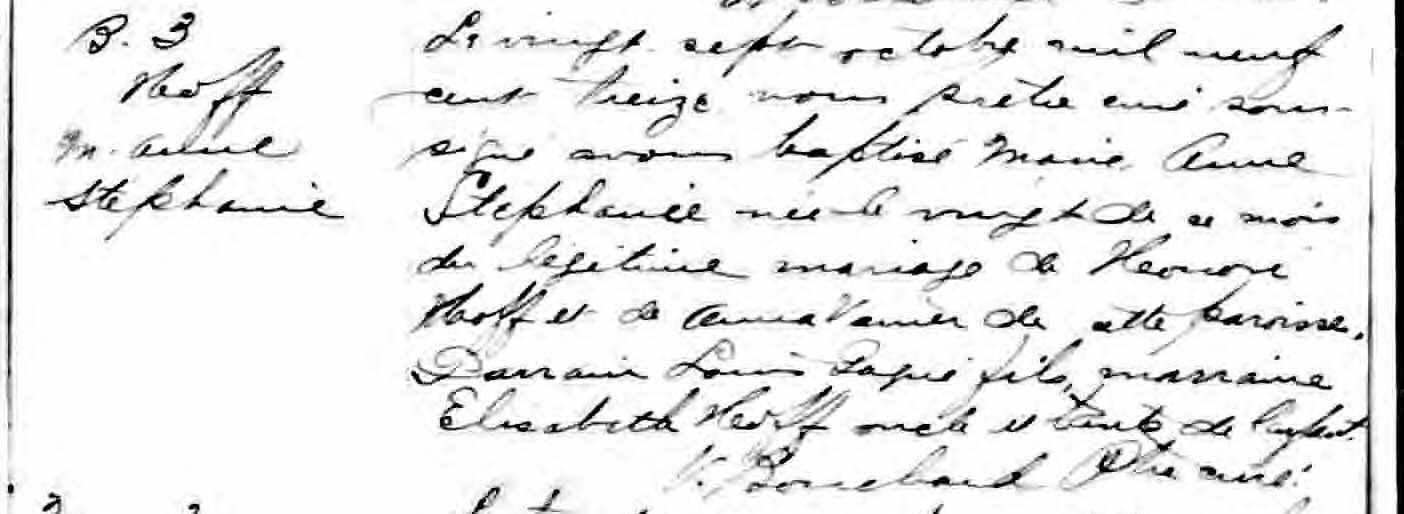 B. 3
Hoff
M. Anne
Stéphanie
Le vingt sept octobre mil neuf
cent treize nous prêtre curé sous-
signé avons baptisé Marie Anne
Stéphanie née le vingt de ce mois
du légitime mariage de Honoré
Hoff et de Anna Vanier de cette paroisse.
Parrain Louis fils, marraine
Elisabeth Hoff oncle et tante de l'enfant.
V. Bouchard Ptre curé.